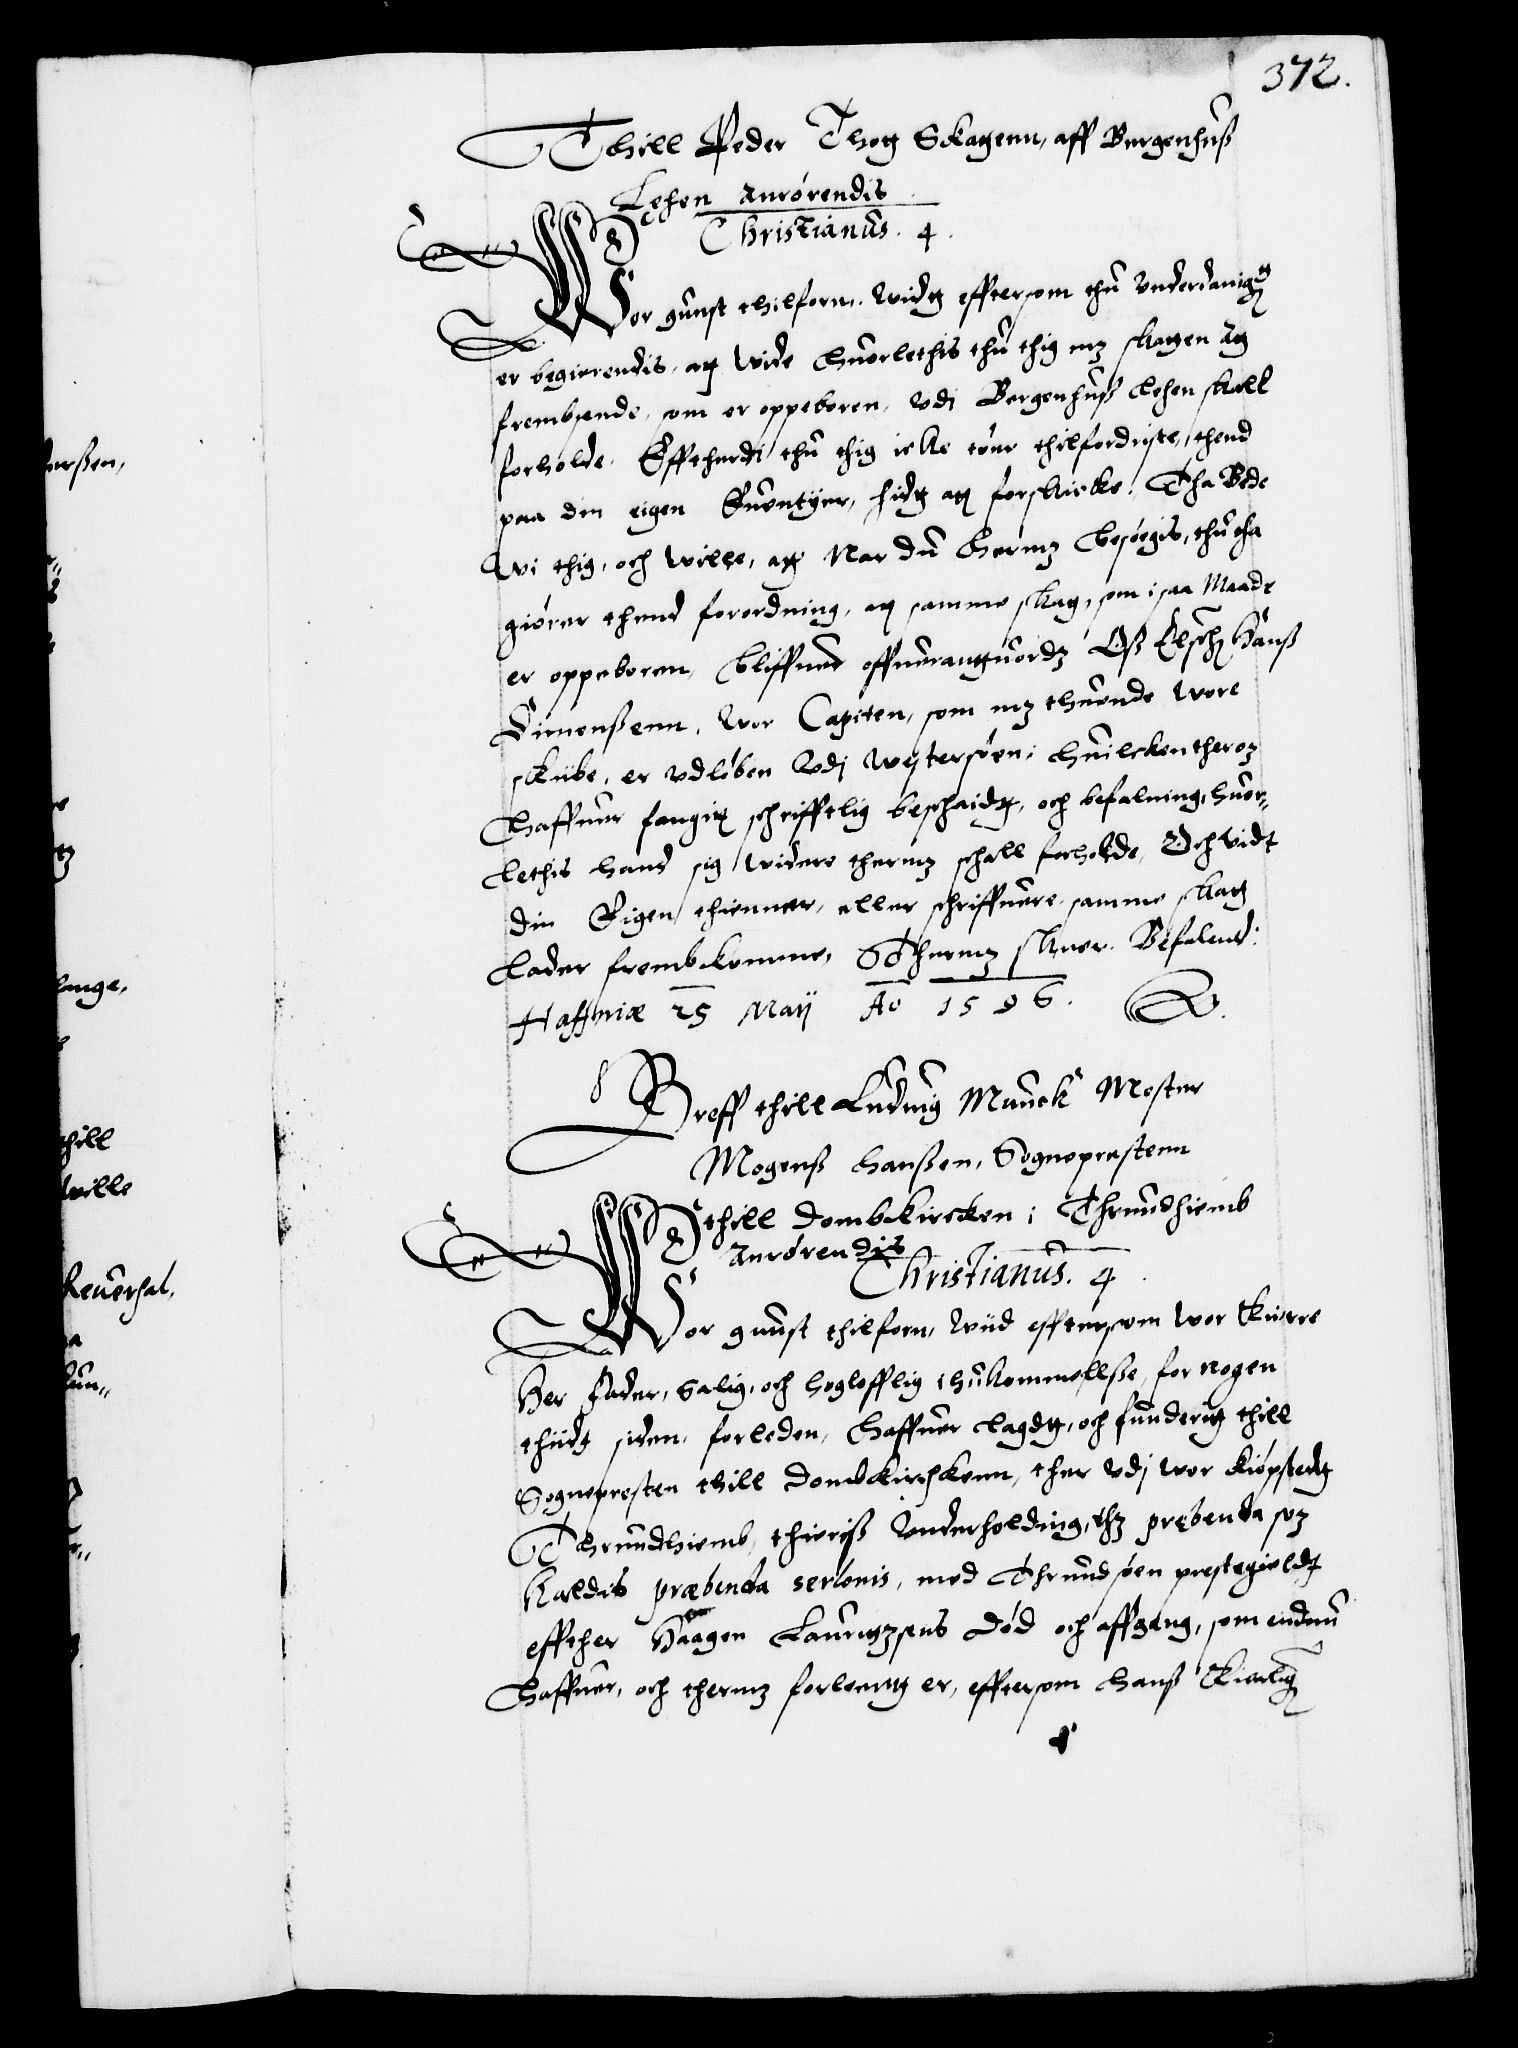 372.
Thill Peder Thott Skatzenn, aff Bergenhuß
Lehen anrørendis
Christianus. 4.
Wor gunst thilforn, Widtt efftersom thu Underdanigst
er begierendis, att wide huorlethis thu thig mz skatten att
frembsende, som er oppeboren, udi Bergenhuß lehen skall
forholde. Effterdi thu thig icke tør thilfordriste, thend
paa din eigen Euentyer, hidtt att forskicke. Tha Bede
Wi thig, och wille, att Nar du hermz besøgis, thu tha
giører thend forordning, att samme skatt, som i saa Maade
er oppeboren, bliffuer offuerantuordz Oß Elsch Hanß
Simenßenn, wor Capiten, som mz thuende wore
skibe, er udløben udj westersøen, huilcken theroz
haffuer fangitt schrifftlig beschaidtt, och befalning, huor-
lethis hand sig widere thermz schall forholde, Och vidt
din Eigen thienner, eller schriffuere samme skatt
lader frembkomme, Thermz skeer. Befalend:
Haffniæ 25 Maij Ao 1596.
Breff thill Luduig Munck Mester
Mogenß Hanßen, Sognepresten
thill Dombkircken i Thrundhiemb
Anrørendis
Christianus. 4
Wor gunst thilforn, Wiid efftersom wor kierre
Her Fader, Salig, och høglofflig ihukommellße, for nogen
thiidtt siden, forleden, haffuer lagdtt, och funderitt thill
Sognepresten thill Dombkirchkenn, ther udj wor kiøpstedtt
Thrundhiemb, thieriß Underholding, thz prebenda soz
kaldis præbenda serlonis, med Thrundsøen prestegieldtt
effther Haagen Lauritzsens død och affgang, som endnu
haffuer, och thermz forlentt er, efftersom hanß kierlig